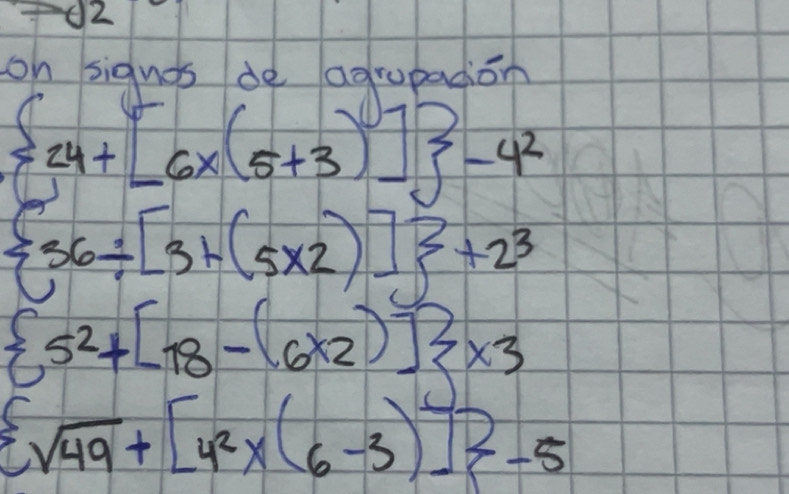 on signos de agrupación
{24+[6×(5+3)]}-4²
{36÷[3+(5×2)]}+2³
{5²+[18-(6×2)]}×3
{√49+[4²×(6-3)]}-5